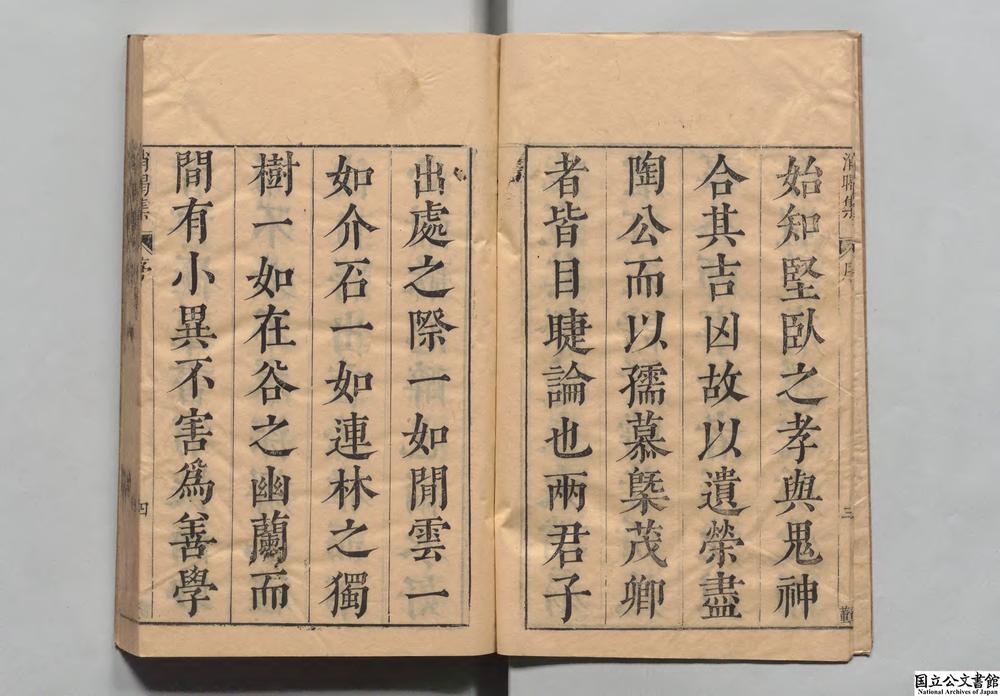 始知堅臥之孝與鬼神
合其吉凶故以遺榮盡
陶公而以孺慕槩茂卿
者皆目睫論也兩君子
出處之際一如閒雲一
如介石一如連林之獨
樹一如在谷之幽蘭而
間有小異不害爲善學
序
三
四
国立公文書館
National Archives of Japan